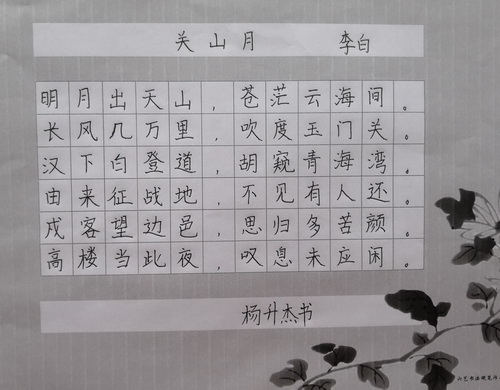 关山月 李白
明月出天山，苍茫云海间。
长风几万里，吹度玉门关。
汉下白登道，胡窥青海湾。
由来征战地，不见有人还。
戍客望边邑，思归多苦颜。
高楼当此夜，叹息未应闲。
杨升杰书